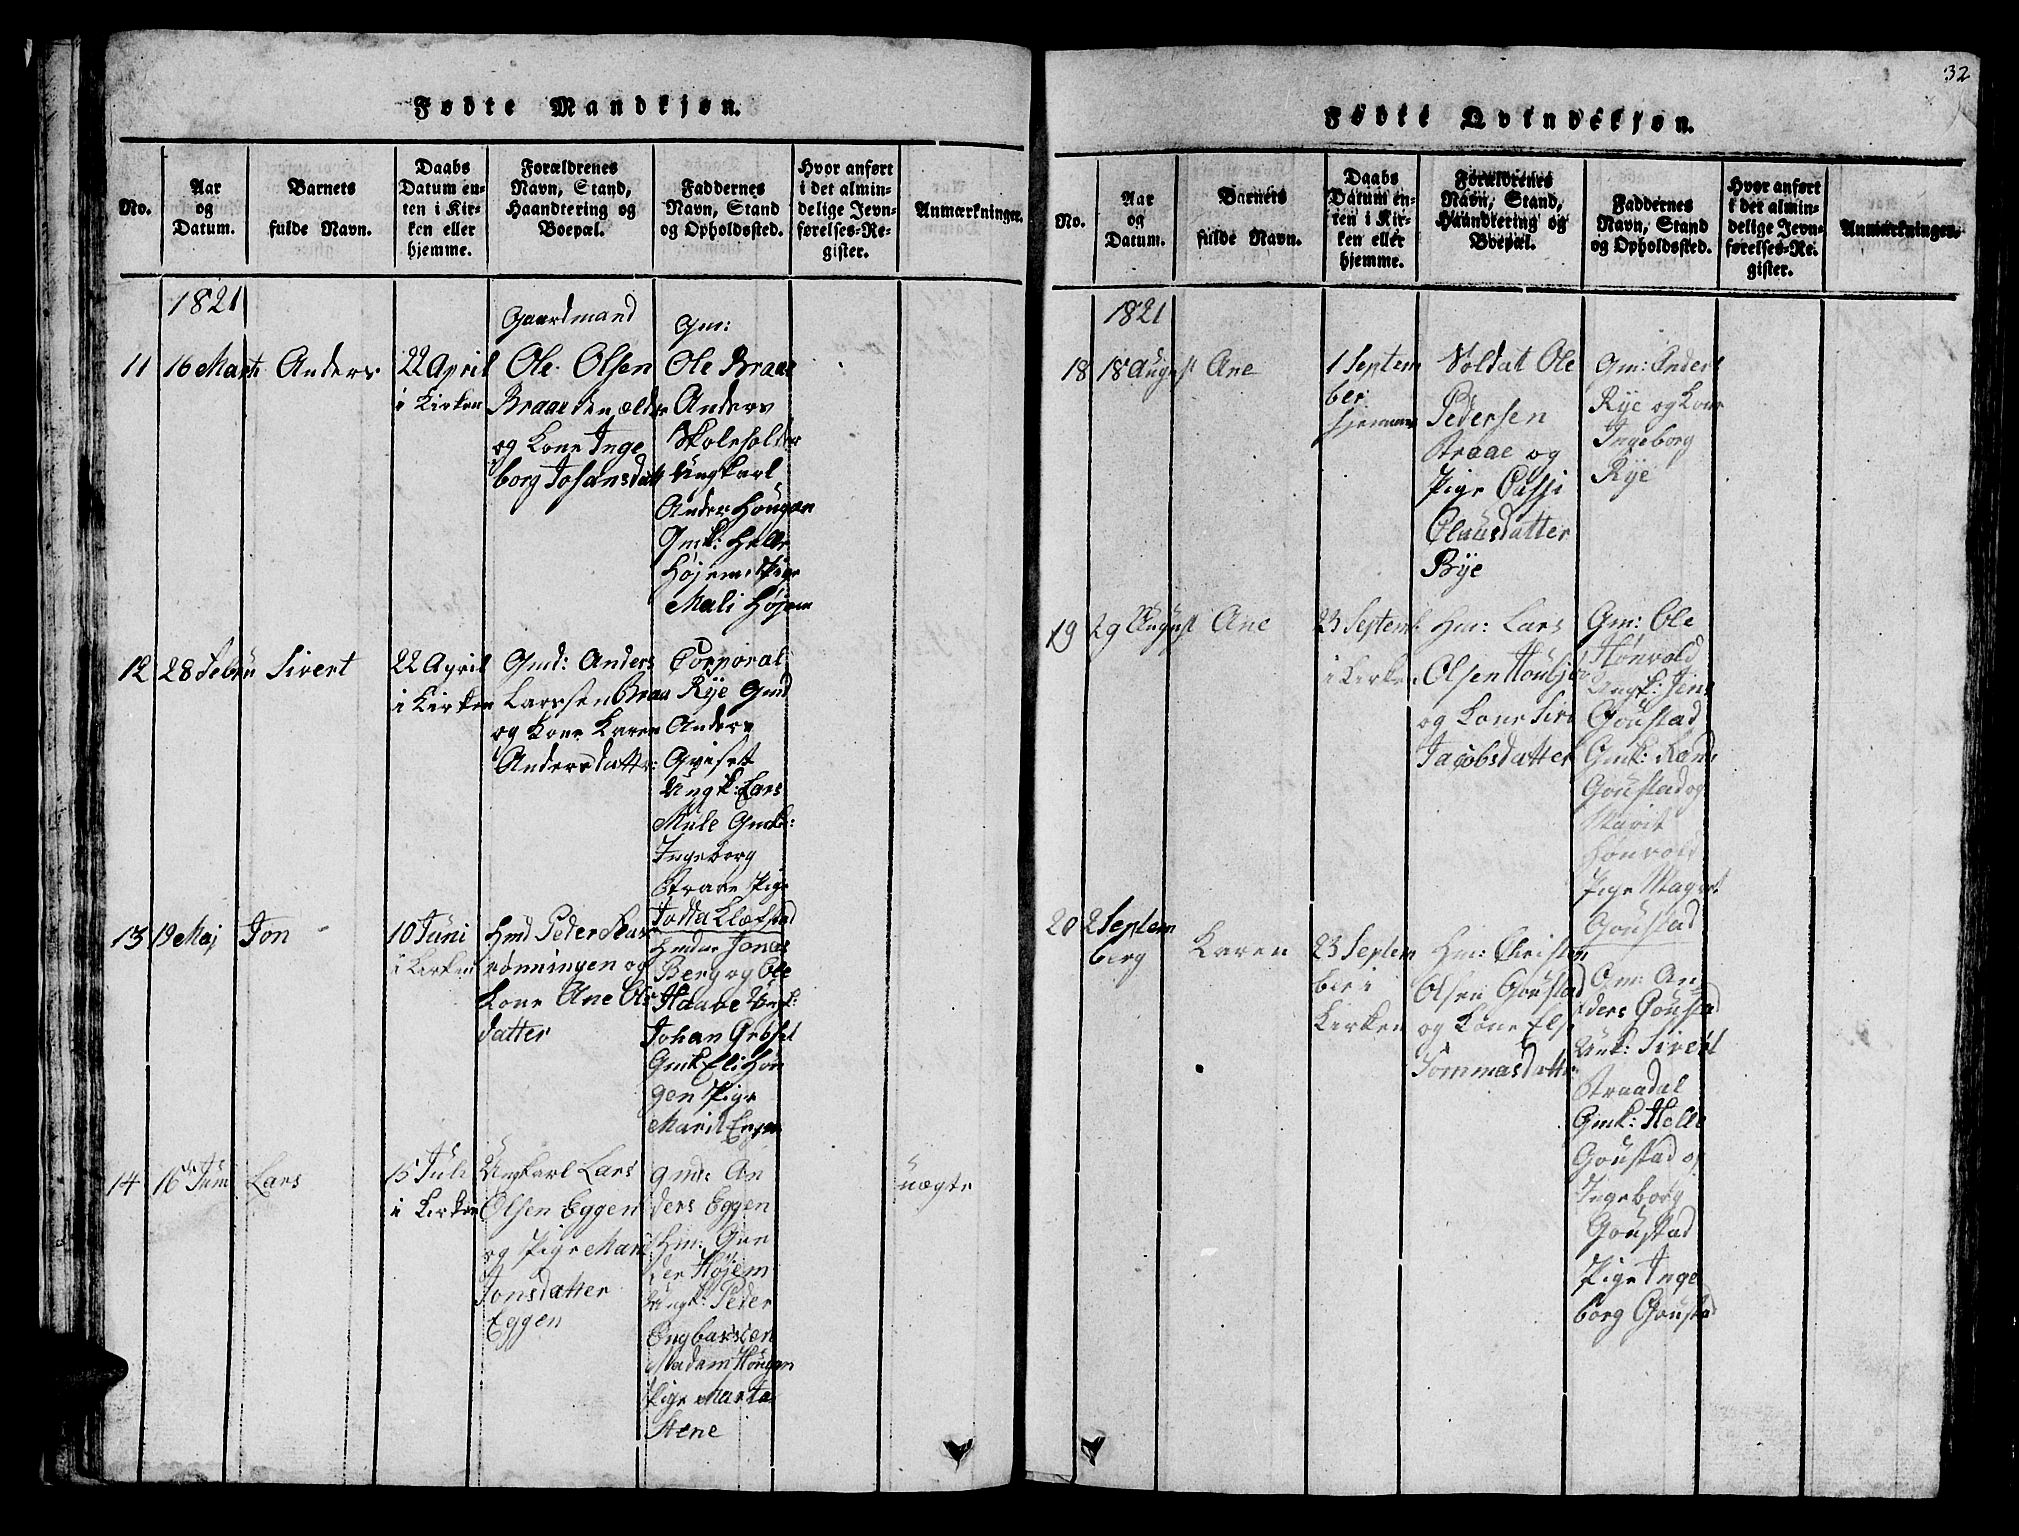 32
Fødte Mandkjøn.
No.
Aar og Datum.
Barnets fulde Navn.
Daabs Datum enten i Kirken eller hjemme.
Forældrenes Navn, Stand, Haandtering og Boepæl.
Faddernes Navn, Stand og Opholdssted.
Hvor anført i det almindelige Jevnførelses-Register.
Anmærkninger.
1821
11
16 Marti
Anders
22 April
i Kirken
Gaardmand
Ole Olsen
Braae den ældre
og Kone Inge
borg Johansdatt
Gm:
Ole Braae
Anders
Skoleholder
Ungkarl
Ander Hougan
Gmk: Helle
Højem Pige
Mali Højem
12
28 Febru
Sivert
22 April
i Kirken
Gmd: Anders
Larssen Braa
og Kone Karen
Andersdatter:
Corporal
Rye Gmd
Anders
Qviset
Ungk: Lars
Mule Gmk:
Ingeborg
Braae Pige
Klæfstad
13
19 Maj
Jon
10 Juni
i Kirken
Hmd Peder
rønningen og
Kone Ane Ols
datter
Jonas
Berg og Ole
Haave Unk:
Johan Grøset
Gmk Eli Hon
gen Pige
Marit
14
16 Juni
Lars
15 Juli
i Kirken
Ungkarl Lars
Olsen Eggen
og Pige Marit
Jonsdatter
Eggen
gmd: An
ders Eggen
Hm: Gun
der Højem
Ungk: Peder
Engbarssen
Madam Hougan
Pige Marta
Stene
nægte
Fødte Qvindekjøn.
No.
Aar og Datum.
Barnets fulde Navn.
Daabs Datum enten i Kirken eller hjemme.
Forældrenes Navn, Stand, Haandtering og Boepæl.
Faddernes Navn, Stand og Opholdssted.
Hvor anført i det almindelige Jevnførelses-Register.
Anmærkninger.
1821
18
18 August
Ane
1 Septem
ber
hjemme
Soldat Ole
Pedersen
Braae og
Pige
Olausdatter
Rye
Gm: Anders
Rye og Kone
Ingeborg
Rye
19
29 August
Ane
23 Septemb
i Kirken
Hm: Lars
Olsen
og Kone Siri
Jacobsdatter
Gm: Ole
Hønvold
Ungk: Jens
Goustad
Gmk: Randi
Goustad og
Marit
Hønvold
Pige Magret
Goustad
20
2 Septem
berg
Karen
23 Septem
ber i
Kirken
Hm: Christen
Olsen Goustad
og Kone Els
Tommasdatter
Gm: An
ders Goustad
Unk: Sivert
Straadal
Gmk: Helle
Goustad og
Ingeborg
Goustad
Pige Inge
borg Goustad